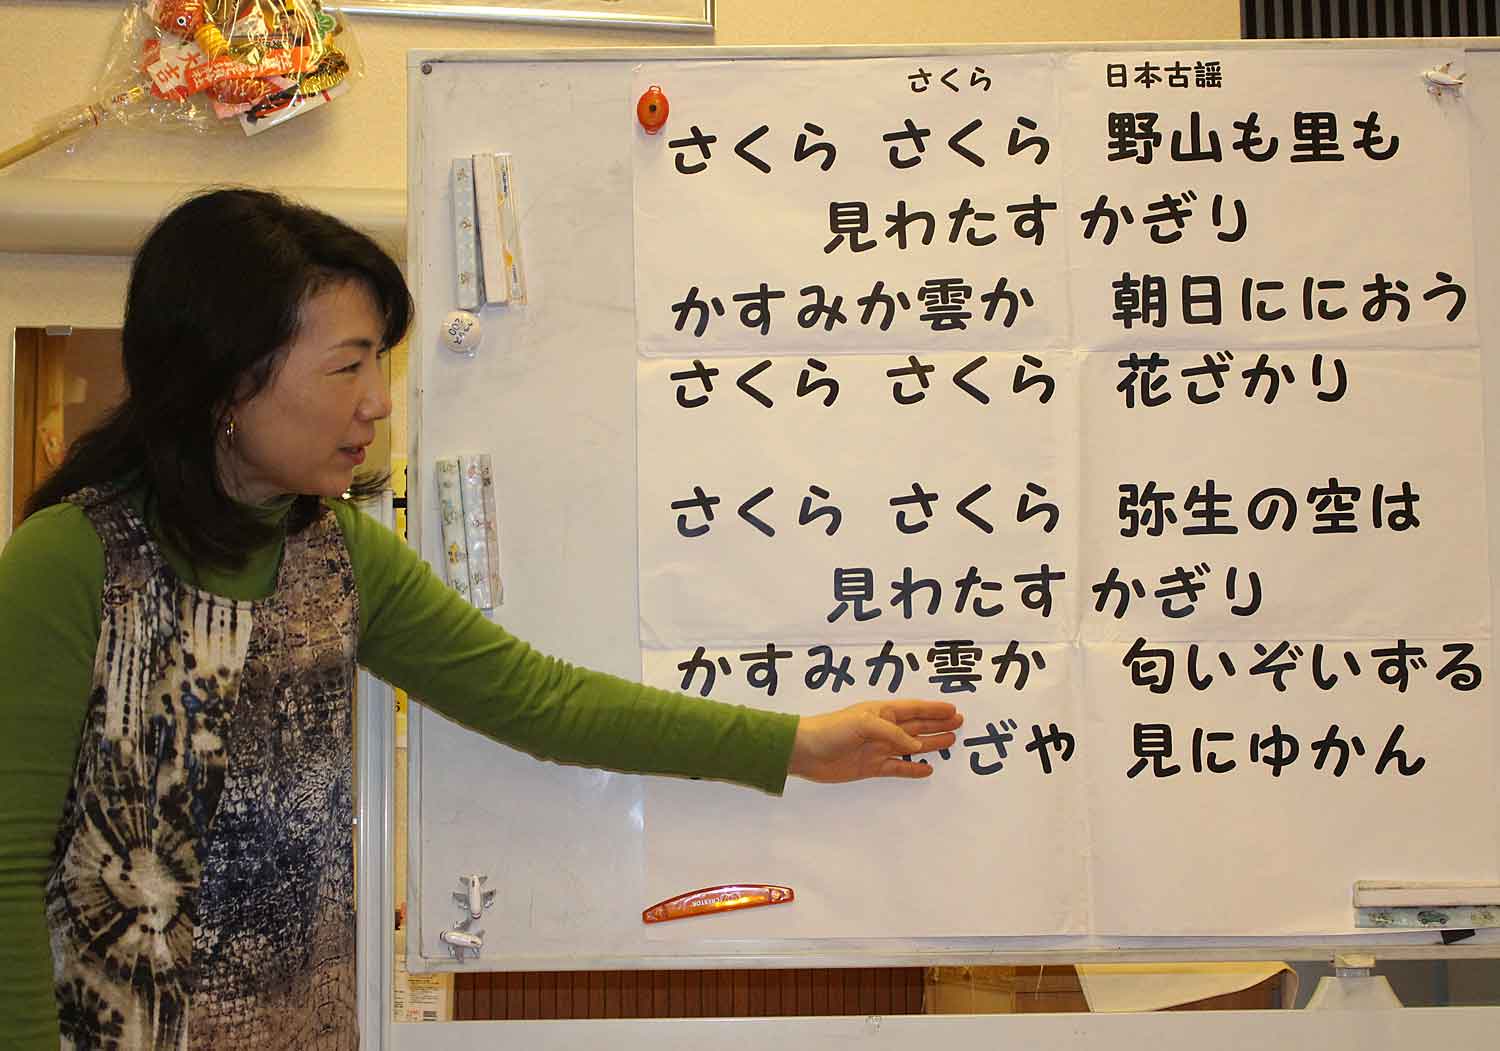 さくら 日本古謡
さくら さくら 野山も里も
見わたす かぎり
かすみか雲か 朝日ににおう
さくら さくら 花ざかり
さくら さくら 弥生の空は
見わたす かぎり
かすみか雲か 匂いぞいずる
いざや 見にゆかん
大吉